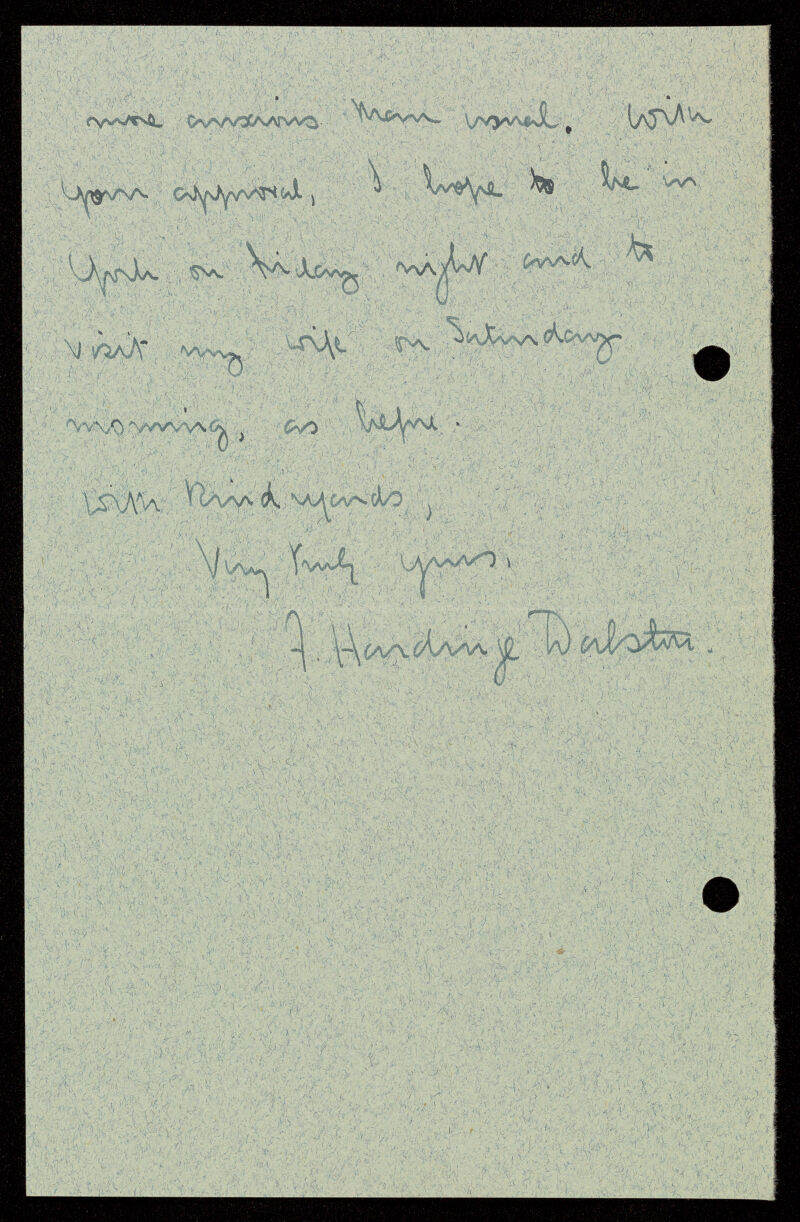 more anxious than usual. With
your approval, I hope to be in
York on Friday night and to
visit my wife on Saturday
morning, as before.
With kind regards,
Very truly yours,
F. Hardinge Dalston.